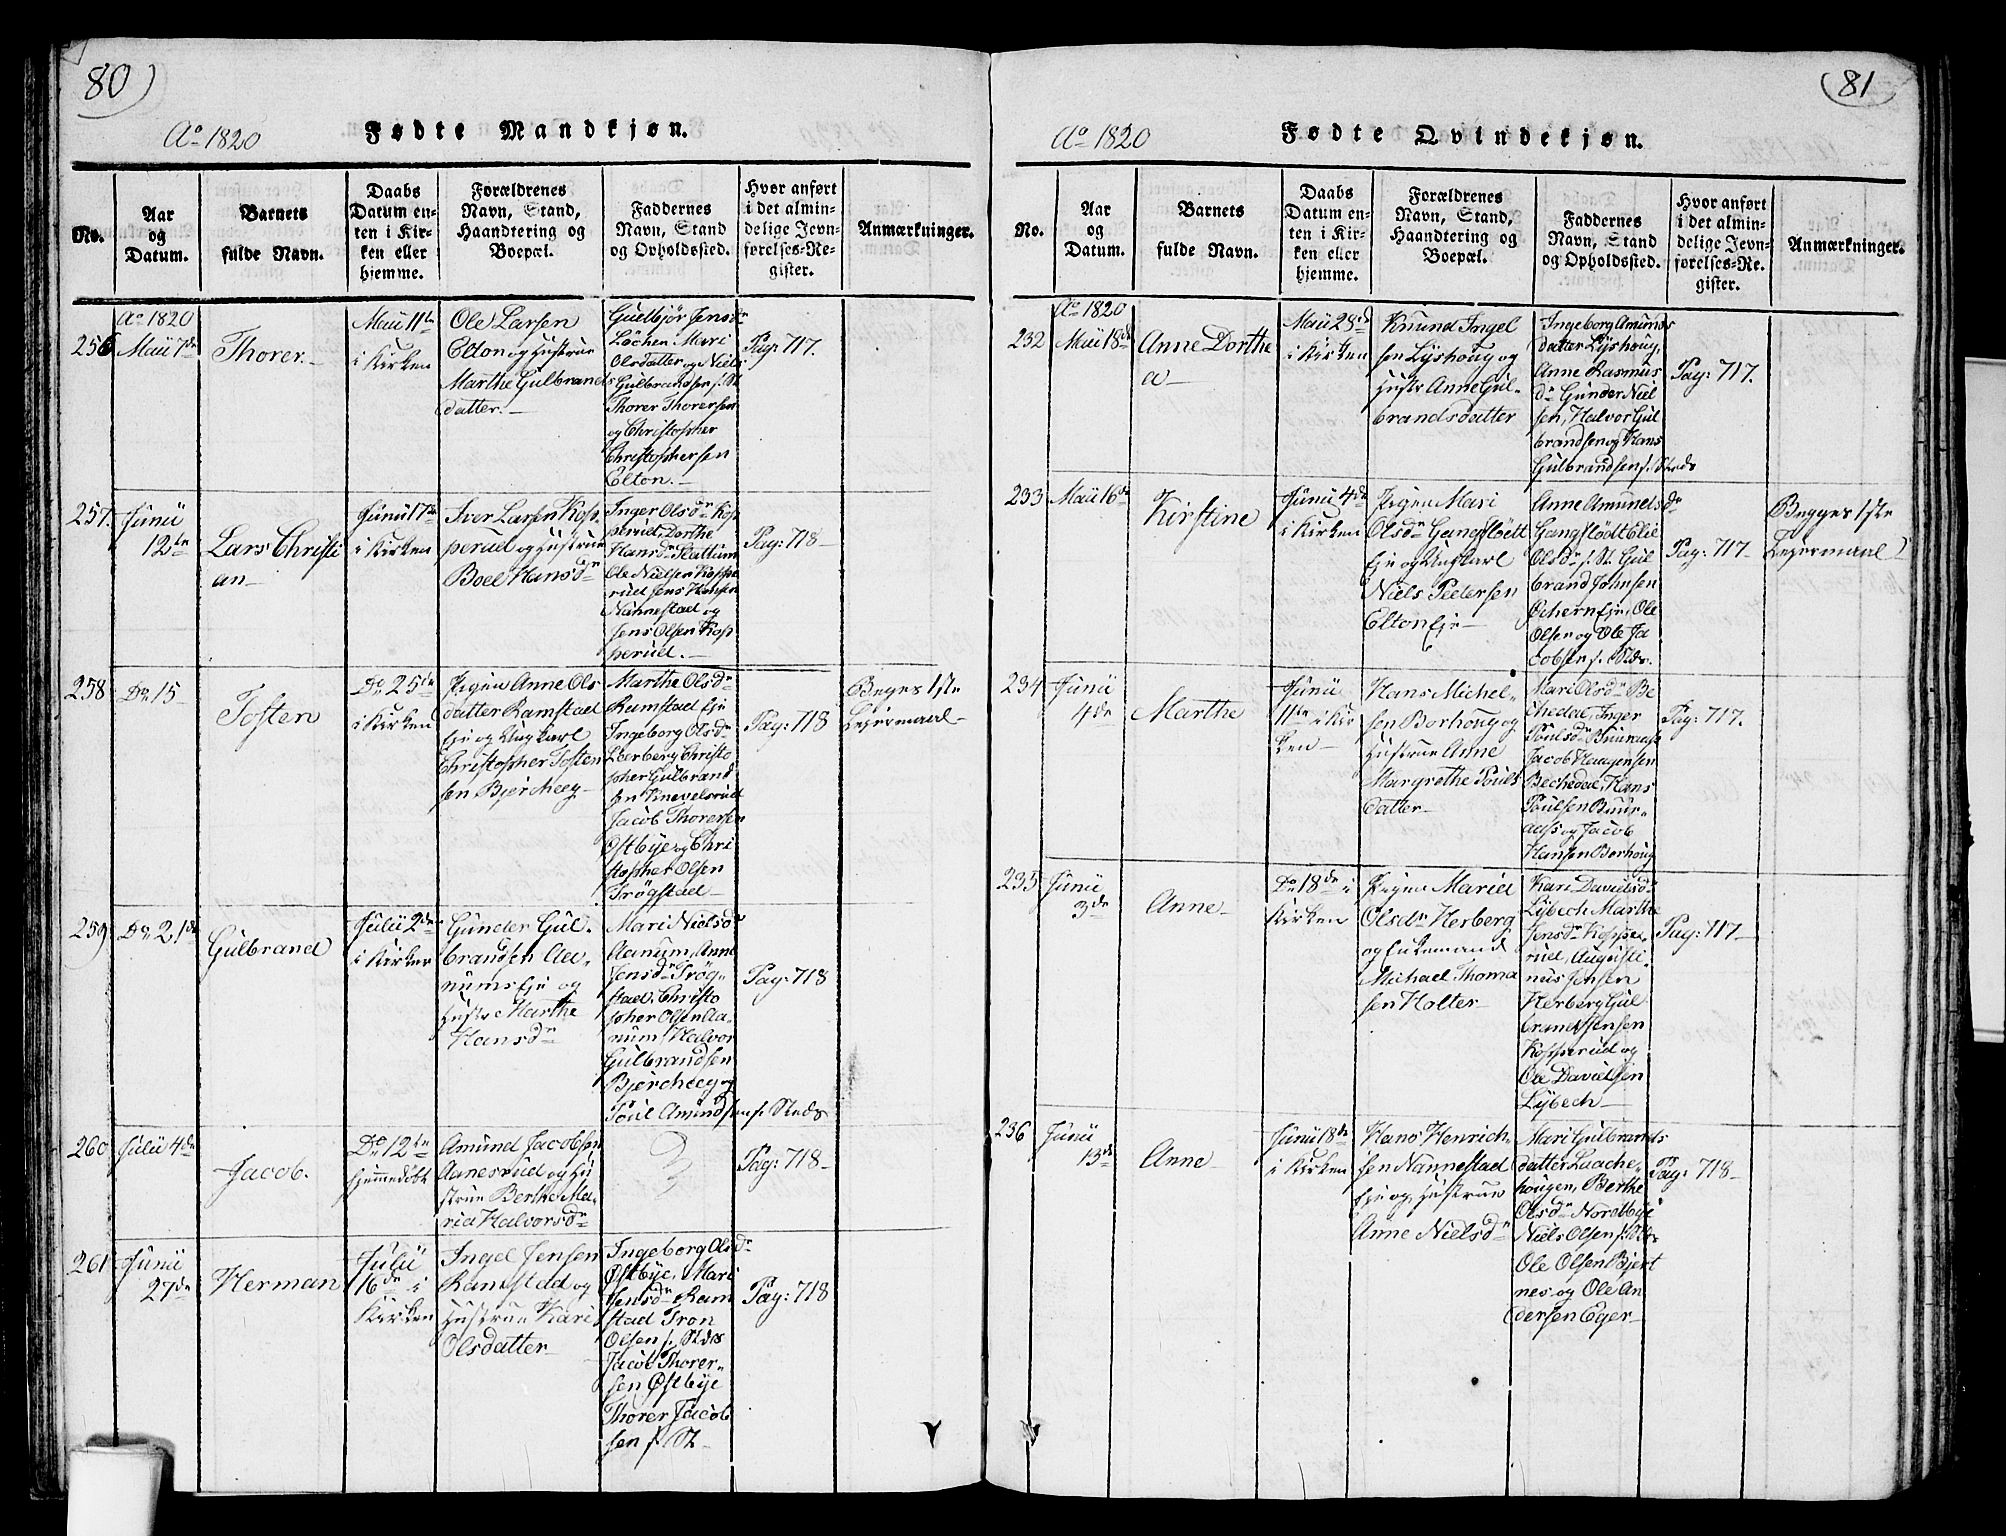 80)
Aº 1820
Fødte Mandkjøn.
No.
Aar
og
Datum.
Barnets
fulde Navn.
Daabs
Datum en-
ten i Kir-
ken eller
hjemme.
Forældrenes
Navn, Stand,
Haandtering og
Boepæl.
Faddernes
Navn, Stand
og Opholdssted.
Hvor anført
i det almin-
delige Jevn-
førelses-Re-
gister.
Anmærkninger.
Aº 1820
256
Maii 7de
Thorer.
Maii 11te
i Kirken
Ole Larsen
Elton og Hustrue
Marthe Gulbrands
datter.
Gudbjør Jensdr
Løchen Mari
Olsdatter og Niels
Gulbrandsen f. St
Thorer Thorersen
og Christopher
Christophersen
Elton.
Pag: 717.
257.
Junii
12te
Lars Christi
an
Junii 17de
i Kirken
Iver Larsen Kop-
perud og Hustrue
Boel Hansdr
Inger Olsdr Kop
perud, Dorthe
Hansdr Slattum
Ole Nielsen Koppe
rud Jens Hansen
Nannestad og
Jens Olsen Kop
perud.
Pag: 718
258
Do 15
Tosten
Do 25de
i Kirken
Pigen Anne Ols
datter Ramstad
Eje og Ungkarl
Christopher Tosten
sen Bjercheeg
Marthe Olsdr
Ramstad Eje
Ingeborg Olsdr
Leerberg Christo
pher Gulbrand
sen Knevelsrud
Jacob Thorersen
Østbye og Chri
stopher Olsen
Trøgstad
Pag: 718
Beges 1ste
Lejermaal
259
Do 21de
Gulbrand
Julii 2den
i Kirken
Gunder Gul-
brandsen Aa-
nums Eje og
Hustr Marthe
Hansdr
Mari Nielsdr
Aanum, Anne
Jensdr Trøg-
stad, Christo
pher Olsen Aa-
num, Halvor
Gulbrandsen
Bjercheeg og
Poul Amundsen f. Steds
Pag: 718
260
Julii 4de
Jacob.
Do 12te
hjemmedøbt
Amund Jacobsen
Aanesrud og Hu
strue Berthe Ma-
ria Halvorsdr
Pag: 718
261
Junii
27de
Herman
Julii
16de i
Kirken
Ingel Jensen
Ramstad og
Hustrue Kari
Olsdatter
Ingeborg Olsdr
Østbye, Mari
Jensdr Ram
stad Tron
Olsen f. Steds
Jacob Thorer-
sen Østbye
Thorer Jacob
sen f. St.
Pag: 718
(81
Aº 1820
Fødte Qvindekjøn.
No.
Aar
og
Datum.
Barnets
fulde Navn.
Daabs
Datum en-
ten i Kir-
ken eller
hjemme.
Forældrenes
Navn, Stand,
Haandtering og
Boepæl.
Faddernes
Navn, Stand
og Opholdssted.
Hvor anført
i det almin-
delige Jevn-
førelses-Re-
gister.
Anmærkninger.
Aº 1820
232
Maii 18de
Anne Dorthe
a
Maii 23de
i Kirken
Knund Ingel
sen Lyshoug og
Hustr Anne Gul-
brandsdatter
Ingeborg Amunds
datter Lyshoug,
Anne Rasmus
dr Gunder Niel
sen, Halvor Gul
brandsen og Hans
Gulbrandsen f. Steds
Pag: 717.
233
Maii 16de
Kirstine
Junii 4de
i Kirken
Pigen Mari
Olsdr Gangfløtt
Eje og Ungkarl
Niels Peetersen
Elton Eje
Anne Amundsdr
Gangfløtt Elie
Olsdr f. St. Gul
brand Johnsen
Ochern Eje, Ole
Olsen og Ole Ja
cobsen f. Stds.
Pag: 717.
Begges 1ste
Lejermaal
234
Junii
4de
Marthe
Junii
11te i Kir
ken
Hans Michel-
sen Borhoug og
Hustrue Anne
Margrethe Pouls
datter
Mari Olsdr Be
chedal, Inger
Poulsdr Buuraas
Jacob Haagensen
Bechedal, Hans
Poulsen Buur-
aas og Jacob
Hansen Borhoug
Pag: 717.
235
Junii
3de
Anne
Do 18de i
Kirken
Pigen Maria
Olsdr Herberg
og Enkemand
Michael Thoma
sen Holter
Kari Davidsdr
Lybech Marthe
Jensdr Koppe-
rud, Augusti-
nus Jensen
Herberg Gul
brand Jensen
Kopperud og
Ole Davidsen
Lybech
Pag: 717
236
Junii
13de
Anne
Junii 18de
i Kirken
Hans Henrich-
sen Nannestad
Eje og Hustrue
Anne Nielsdr
Mari Gulbrands
datter Laache-
hougen, Berthe
Olsdr Nordbye
Niels Olsen f. Stds.
Ole Olsen Bjert
nes og Ole An
dersen Eger
Pag: 718